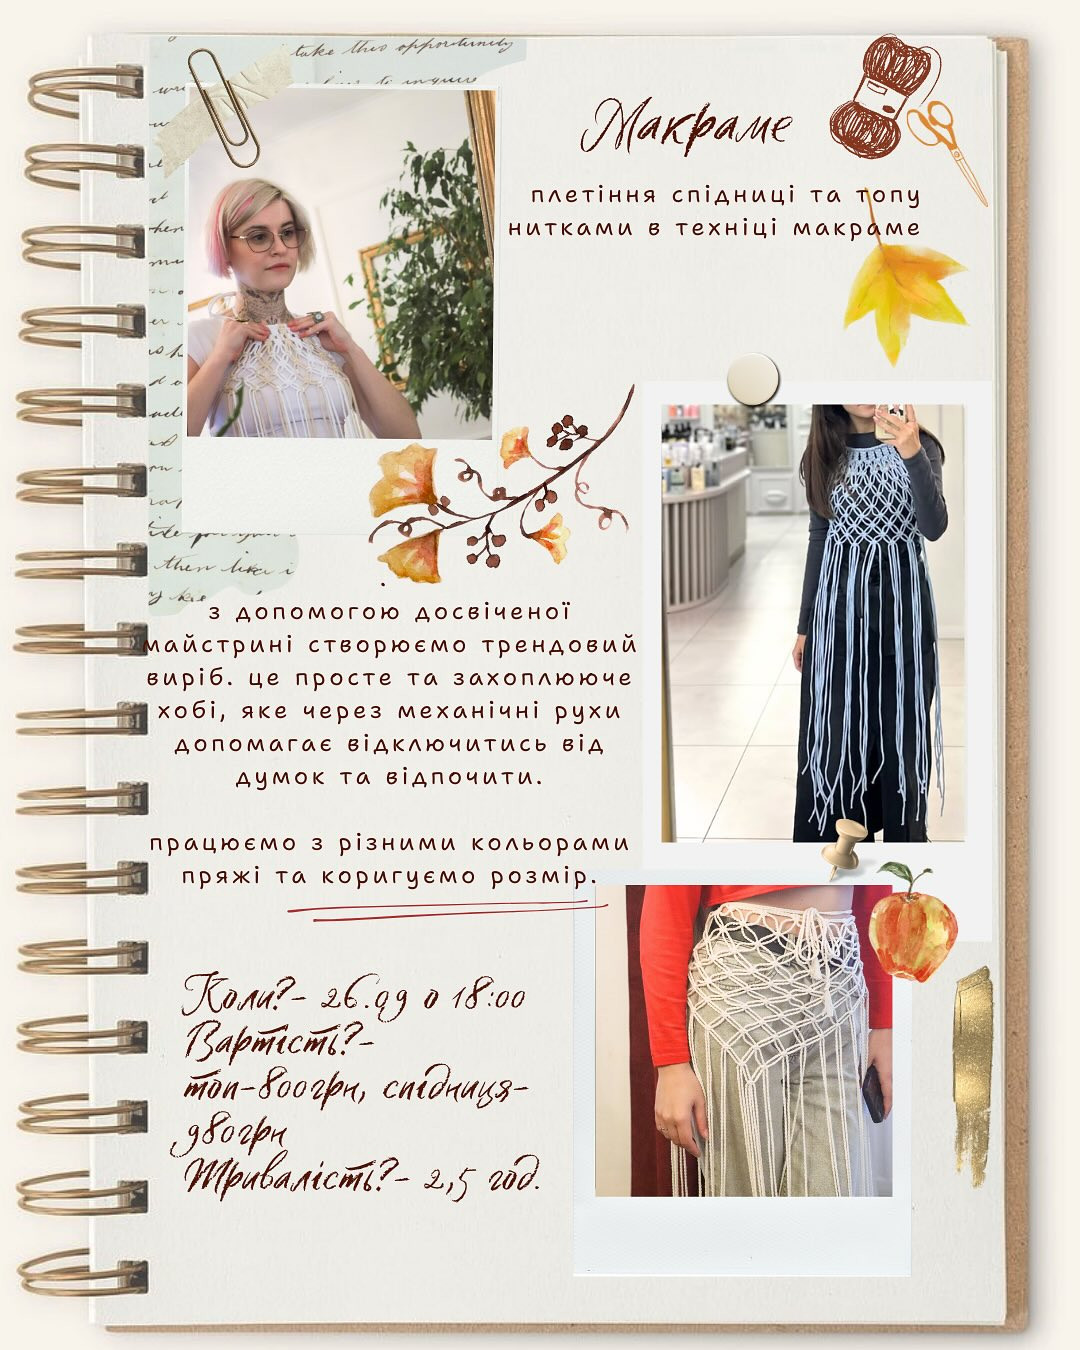 take this opportunity
to inquire
Макраме
плетіння спідниці та топу
нитками в техніці макраме
then like i
з допомогою досвіченої
майстрині створюємо трендовий
виріб. це просте та захоплююче
хобі, яке через механічні рухи
допомагає відключитись від
думок та відпочити.
працюємо з різними кольорами
пряжі та коригуємо розмір.
Коли?- 26.09 о 18:00
Вартість?-
топ-800грн, спідниця-
980грн
Тривалість?- 2,5 год.